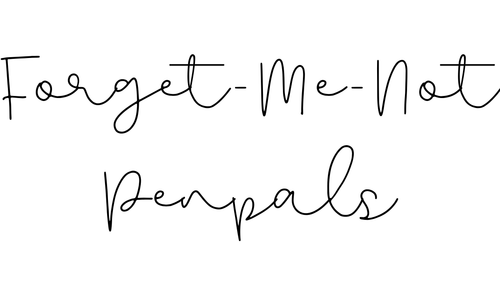 Forget-Me-Not
Penpals